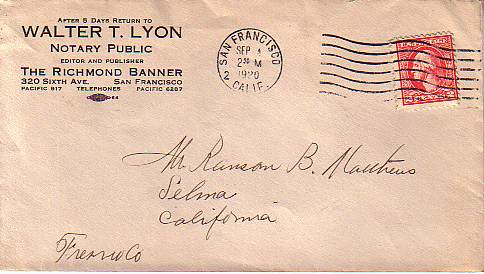 AFTER 5 DAYS RETURN TO
WALTER T. LYON
NOTARY PUBLIC
EDITOR AND PUBLISHER
THE RICHMOND BANNER
320 SIXTH AVE. SAN FRANCISCO
PACIFIC 917 TELEPHONES PACIFIC 6287
SAN FRANCISCO
SEP 4
M
2 1920
CALIF.
Mr. Ranson B. Matthews
Selma
California
Fresno Co